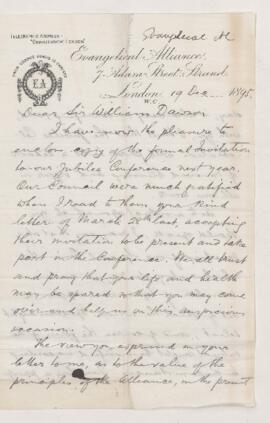 Evangelical Al
TELEGRAPHIC ADDRESS
Evangelical Alliance
7 Adam Street, Strand
EA
London 19 Dec 1895
W.C
Dear Sir William Dawson
I have now the pleasure to
enclose copy of the formal Invitation
to our Jubilee Conference next year.
Our Council were much gratified
when I read to them your kind
letter of March 20th last, accepting
their invitation to be present and take
part in the Conference. We all trust
and pray that your life and health
may be spared so that you may come
over and help us on this auspicious
occasion.
The view you expressed in your
letter to me, as to the value of the
principles of the Alliance, in the present